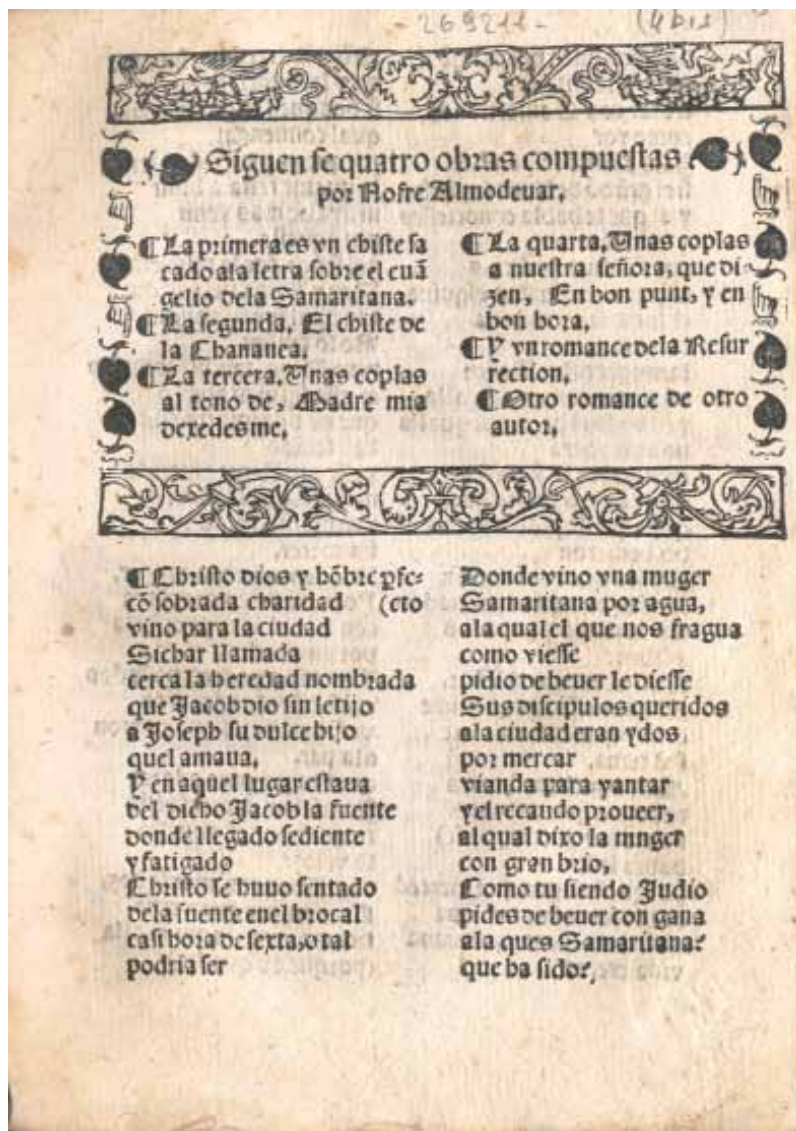 - 269211 - (4 bis)
Siguen se quatro obras compuestas
por Nofre Almodeuar.
¶ La primera es vn chiste sa
cado ala letra sobre el euā
gelio dela Samaritana.
¶ La segunda, El chiste de
la Chananea.
¶ La tercera. Unas coplas
al tono de, Madre mia
dexedes me,
¶ La quarta, Unas coplas
a nuestra señora, que di-
zen, En bon punt, y en
bon hora.
¶ Y vn romance dela Resur
rection.
¶ Otro romance de otro
autor.
¶ Christo dios y hōbre ꝑfe-
cō sobrada charidad (cto
vino para la ciudad
Sichar llamada
cerca la heredad nombrada
que Jacob dio sin letijo
a Joseph su dulce hijo
quel amaua.
Y en aquel lugar estaua
del dicho Jacob la fuente
donde llegado sediente
y fatigado
Christo se huuo sentado
dela fuente enel brocal
casi hora de sexta, o tal
podria ser
Donde vino vna muger
Samaritana por agua,
ala qual el que nos fragua
como viesse
pidio de beuer le diesse
Sus discipulos queridos
ala ciudad eran ydos,
por mercar
vianda para yantar
y el recaudo proueer,
al qual dixo la mnger
con gran brio,
Como tu siendo Judio
pides de beuer con gana
ala ques Samaritana?
que ha sido?